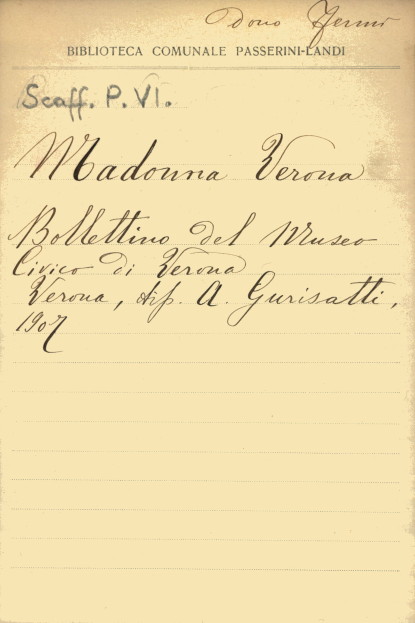 Dono
BIBLIOTECA COMUNALE PASSERINI-LANDI
Scaff. P. VI.
Madonna Verona
Bollettino del Museo
Civico di Verona
Verona, tip. A. Gurisatti,
1907